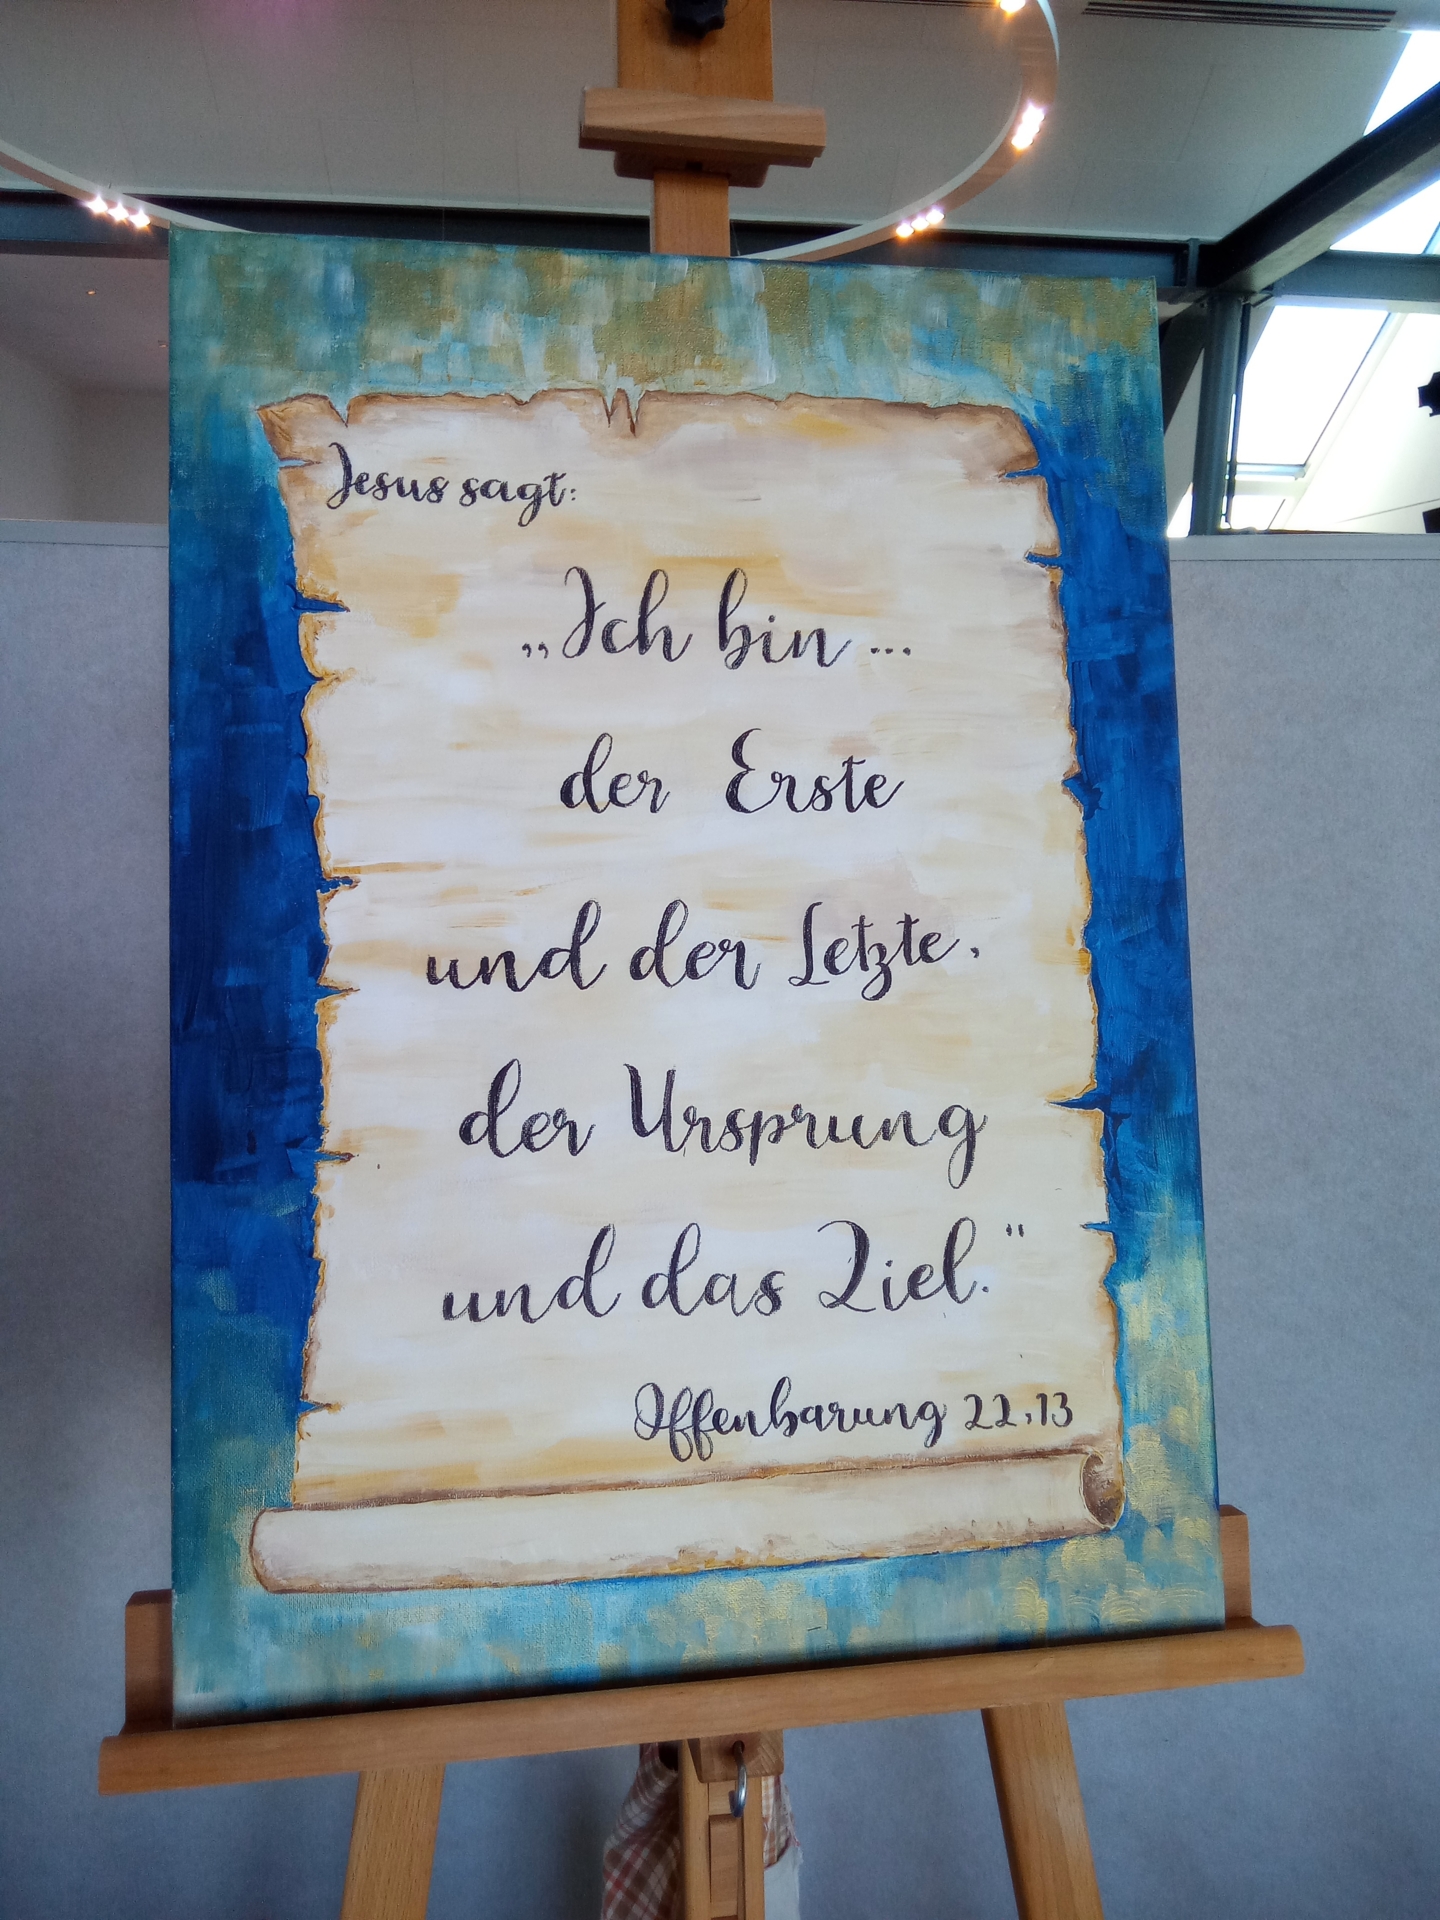 Jesus sagt:
„Ich bin ...
der Erste
und der Letzte,
der Ursprung
und das Ziel."
Offenbarung 22,13